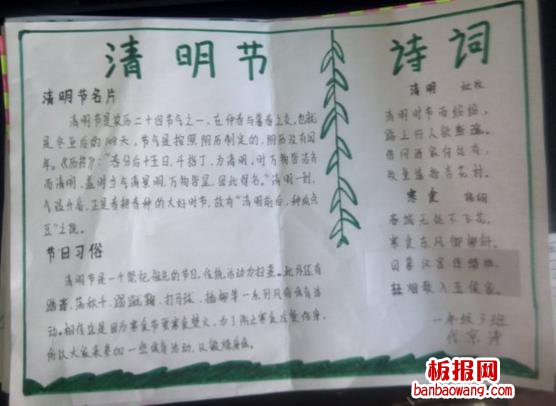 清明节
清明节名片
清明节是农历二十四节气之一,在仲春与暮春之交,也就
是冬至后的108天。节气是按照阳历制定的,阴历没有闰
年。《历书》:"春分后十五日,斗指丁,为清明,时万物皆洁齐
而清明,盖时当气清景明,万物皆显,因此得名。"清明一到,
气温升高,正是春耕春种的大好时节,故有"清明前后,种瓜点
豆"之说。
节日习俗
清明节是一个祭祀祖先的节日,传统活动为扫墓。此外还有
踏青、荡秋千、踢蹴鞠、打马球、插柳等一系列风俗体育活
动。相传这是因为寒食节要寒食禁火,为了防止寒食冷餐伤身,
所以大家来参加一些体育活动,以锻炼身体。
诗词
清明 杜牧
清明时节雨纷纷,
路上行人欲断魂。
借问酒家何处有,
牧童遥指杏花村。
寒食 韩翃
春城无处不飞花,
寒食东风御柳斜。
日暮汉宫传蜡烛,
轻烟散入五侯家。
一年级3班
板报网
banbaowang.com